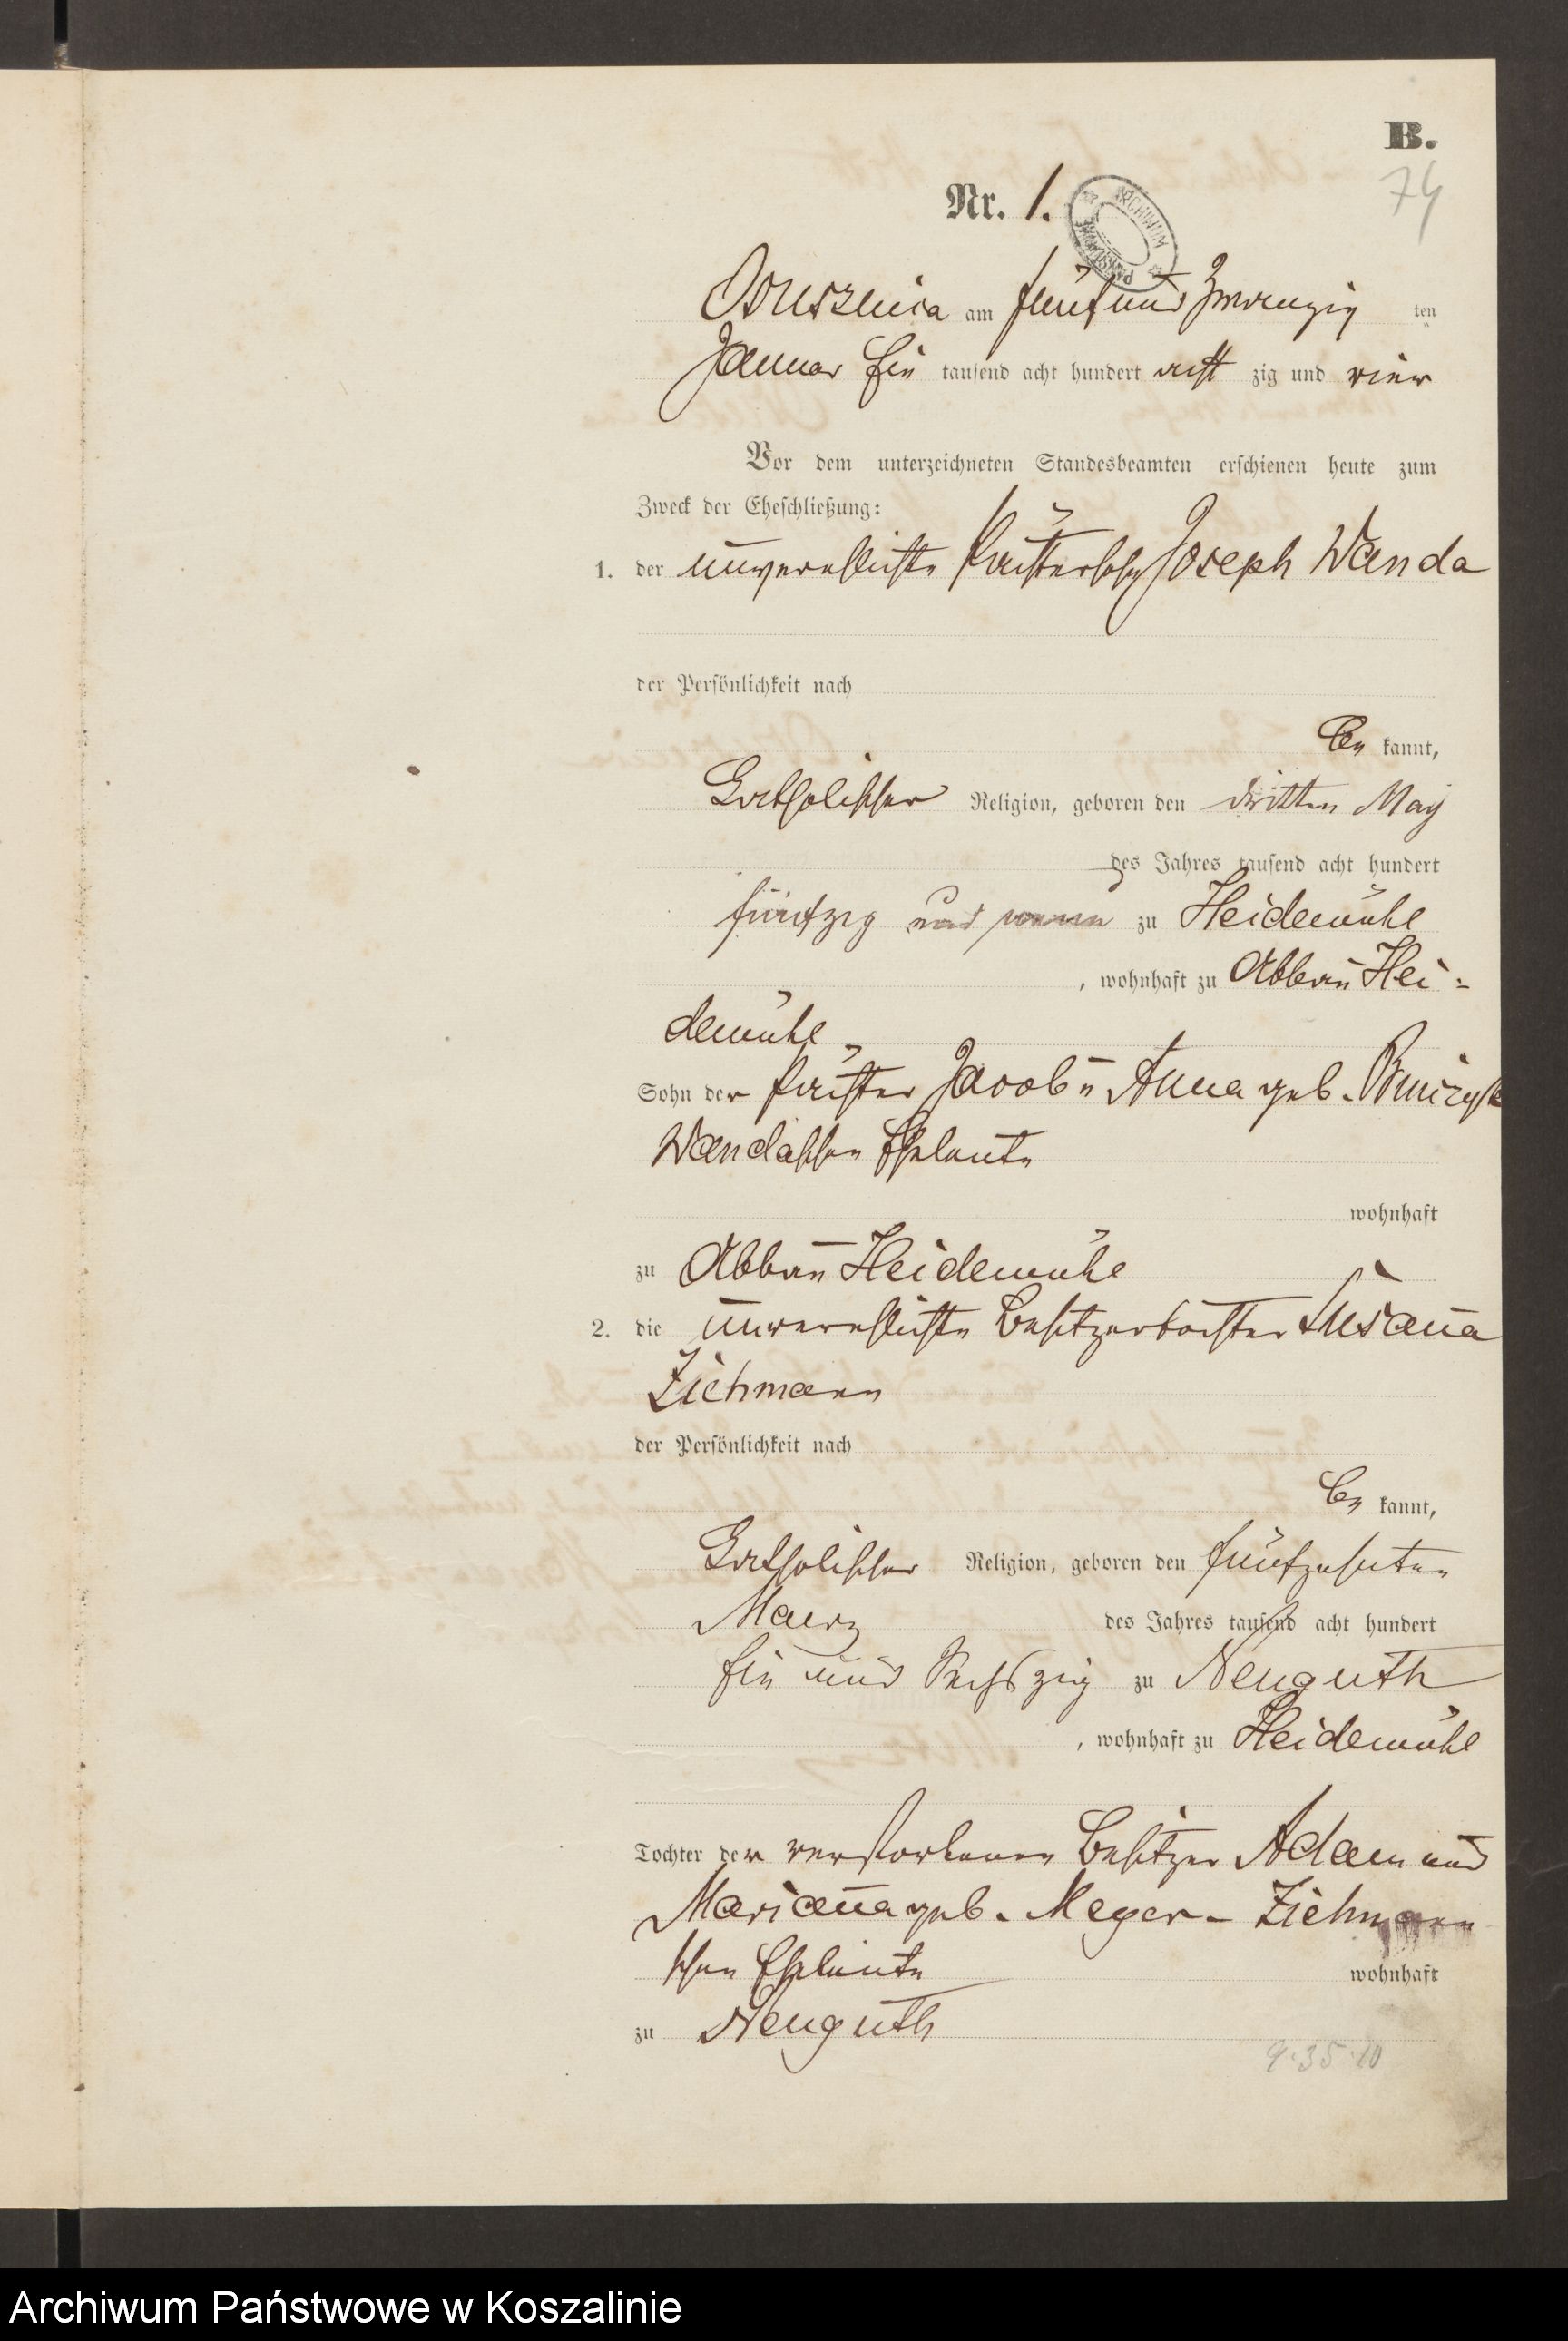 B.
74
Nr. 1.
ARCHIWUM PAŃSTWOWE
Osuszniza am fünf und zwanzig ten
Januar Ein tausend acht hundert acht zig und vier
Vor dem unterzeichneten Standesbeamten erschienen heute zum
Zweck der Eheschließung:
1. der unverehlichte Joseph Wanda
der Persönlichkeit nach
be kannt,
katholischer Religion, geboren den dritten May
des Jahres tausend acht hundert
fünfzig und zu Heidemühl
, wohnhaft zu Abbau Hei-
demühl
Sohn der Pächter Jacob u Anna geb.
Wandaschen Eheleute
wohnhaft
zu Abbau Heidemühl
2. die unverehlichte Besitzertochter Susanna
Ziehmann
der Persönlichkeit nach
be kannt,
katholischer Religion, geboren den fünfzehnten
Maerz des Jahres tausend acht hundert
Ein und Sechszig zu Neuguth
, wohnhaft zu Heidemühl
Tochter der verstorbenen Besitzer Adam und
Marianna geb. Meger - Ziehmann
schen Eheleute wohnhaft
zu Neuguth
9.35.10
Archiwum Państwowe w Koszalinie